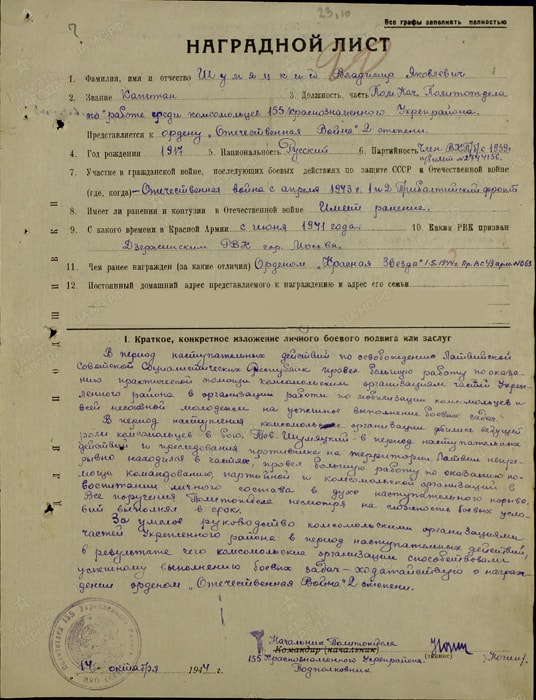 23.10
Все графы заполнять полностью
НАГРАДНОЙ ЛИСТ
1. Фамилия, имя и отчество Шумяцкий Владимир Яковлевич
2. Звание Капитан 3. Должность, часть Пом Нач Политотдела
по работе среди комсомольцев 155 Краснознаменного Укрепрайона.
Представляется к ордену „Отечественная Война" 2 степени.
4. Год рождения 1917 5. Национальность Русский 6. Партийность Член ВКП(б) с 1939г.
7. Участие в гражданской войне, последующих боевых действиях по защите СССР и Отечественной войне
(где, когда) – Отечественная война с апреля 1943 г. 1 и 2 Прибалтийский фронт
8. Имеет ли ранения и контузии в Отечественной войне Имеет ранение.
9. С какого времени в Красной Армии с июня 1941 года. 10. Каким РВК призван
Дзержинским РВК гор. Москва.
11. Чем ранее награжден (за какие отличия) Орденом „Красная Звезда" 1.5.1944г.
12. Постоянный домашний адрес представляемого к награждению и адрес его семьи
I. Краткое, конкретное изложение личного боевого подвига или заслуг
В период наступательных действий по освобождению Латвийской
Советской Социалистических Республик провел большую работу по оказа
нию практической помощи комсомольским организациям частей Укреп
ленного района в организации работы по мобилизации комсомольцев и
всей несоюзной молодежи на успешное выполнение боевых задач.
В период наступления комсомольские организации добились ведущей
роли комсомольцев в бою. Тов. Шумяцкий в период наступательных
действий и преследования противника на территории Латвии непре
рывно находился в частях, провел большую работу по оказанию по-
мощи командованию, партийной и комсомольской организаций в
воспитании личного состава в духе наступательного порыва.
Все поручения Политотдела несмотря на сложность боевых усло
вий выполнял в срок.
За умелое руководство комсомольскими организациями
частей Укрепленного района в период наступательных действий,
в результате чего комсомольские организации способствовали
успешному выполнению боевых задач – ходатайствую о награж
дении орденом „Отечественная Война" 2 степени.
Начальник Политотдела
Командир (начальник)
155 Краснознаменного Укрепрайона
Подполковник
14 октября 1944 г.